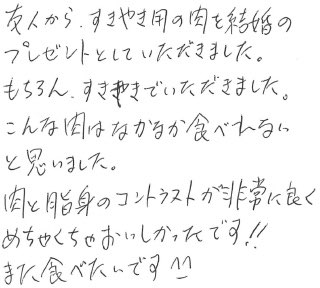 友人から、すきやき用の肉を結婚の
プレゼントとしていただきました。
もちろん、すきやきでいただきました。
こんな肉はなかなか食べれない
と思いました。
肉と脂身のコントラストが非常に良く
めちゃくちゃおいしかったです!!
また食べたいです^^